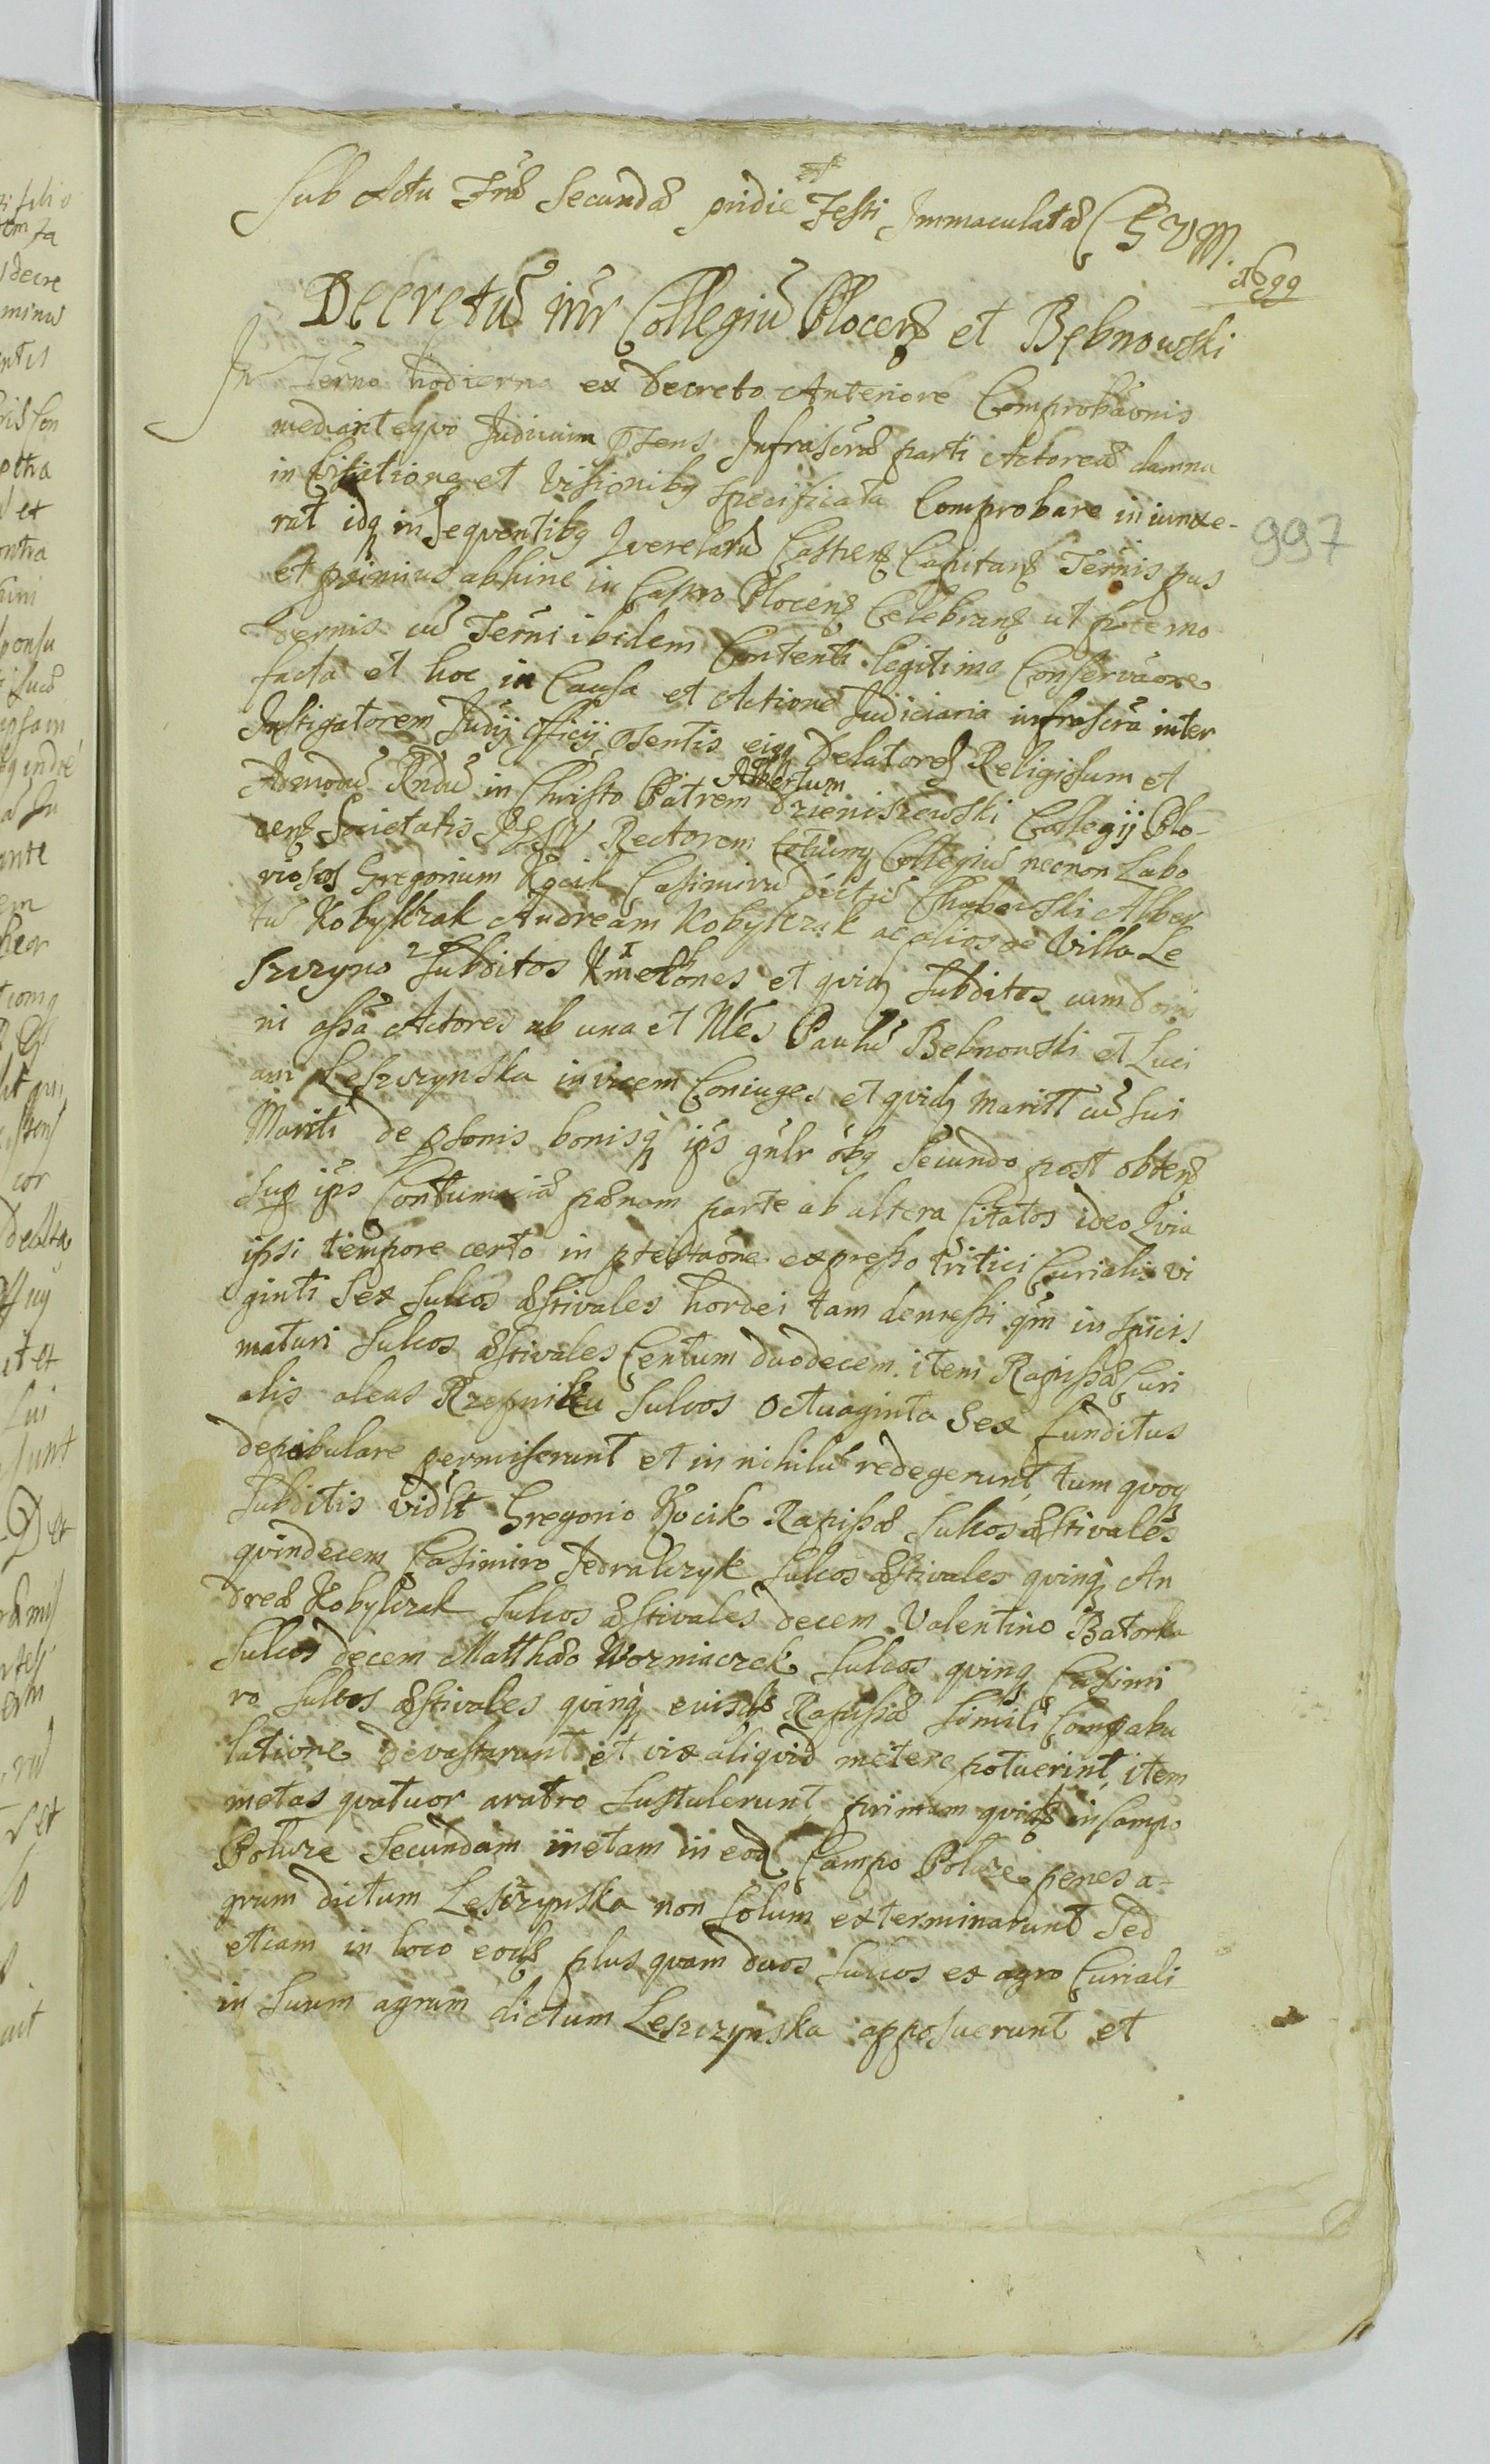 Sub Actu Fria Secunda pridie Festi Immaculatæ C B V M.
1699
Decretū intr Collegiū Plocens et Bębnowski
In Termo hodierno ex Decreto Anteriore Comprobaōnis
mediante qvo Judicium pñens Infrascrae parti Actoreae damna
in Citatione et Visionibq specificata Comprobare iniunxe-
rat idq in seqventibq Qverelarū Castren Capitan Termis pus
997
et primius abhinc in Castro Plocen Celebran ut p̄tē mo
dernis cū Termi ibidem Contenti legitima Conservaōne
facta et hoc in Causa et Actione Judiciaria infrascrā inter
Instigatorem Judij Officij pñentis eiqq Delatores Religiosum et
Admodū Rndū in Christo Patrem Albertum Dzieniszewski Collegij Plo-
cens Societatis JESU Rectorem totumq Collegiū necnon Labo
riosos Gregorium Kocik Casimirū dictū Chabowski Alber
tū Kobylczak Andream Kobylczak ac alios de Villa Le
szczyno Subditos Kmethones et qvidē Subditos cum Domi
ni assā Actores ab una et Mles Paulū Bebnowski et Luci
am Leszczynska invicem Coniuges et qvidē Maritt cū sui
Mariti de psonis bonisq ips gnlr ōbq Secundo post obten
sup ips Contumaciæ pænam parte ab altera Citatos ideo Qvia
ipsi tempore certo in ptestaōne expresso tritici Curialis vi
ginti Sex Sulcos æstivales hordei tam demessi qm in spicis
maturi Sulcos æstivales Centum duodecem item Rapissæ Curi
alis aleas Rzepniku Sulcos Octuaginta Sex funditus
depabulare permiserunt et in nihilū redegerunt, tum qvoq
Subditis vidlt Gregorio Kocik Rapissæ Sulcos æstivales
qvindecem Casimiro Jedralczyk Sulcos æstivales qvinq An
dreæ Kobylczak Sulcos æstivales decem Valentino Batorka
Sulcos decem Matthæo Wozniaczek Sulcos qvinq Casimi
ro Sulcos æstivales qvinq euisde Rapissæ Simili Compabu
latione devastarunt et vix aliqvid metere potuerint, item
metas qvatuor aratro Sustulerunt, primam qvidē in Campo
Polurze Secundam metam in eod Campo Polurze penes a-
grum dictum Leszczynska non Solum exterminarunt Sed
etiam in loco eode plus qvam duos Sulcos ex agro Curiali
in Suum agrum dictum Leszczynska apposuerunt et